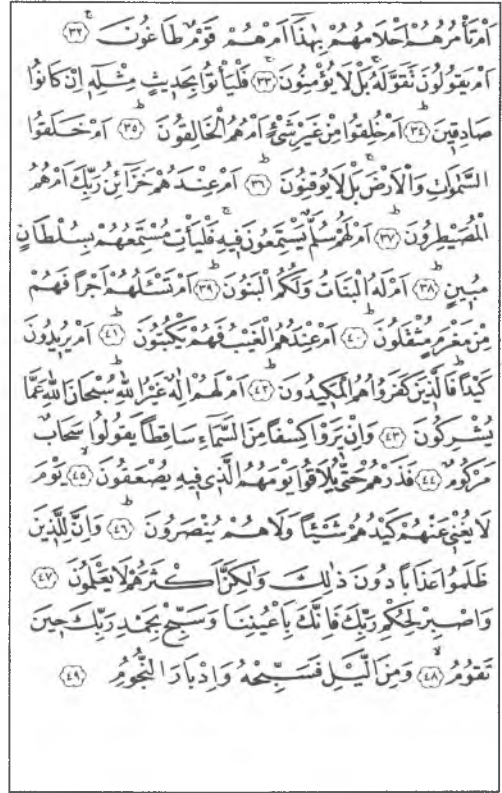 اَمْ تَأْمُرُهُمْ اَحْلَامُهُمْ بِهٰذَٓا اَمْ هُمْ قَوْمٌ طَاغُونَ ۚ ﴿٣٢﴾
اَمْ يَقُولُونَ تَقَوَّلَهُ ۚ بَلْ لَا يُؤْمِنُونَ ۚ ﴿٣٣﴾ فَلْيَأْتُوا بِحَدِيثٍ مِثْلِهِ اِنْ كَانُوا
صَادِقِينَ ۜ ﴿٣٤﴾ اَمْ خُلِقُوا مِنْ غَيْرِ شَيْءٍ اَمْ هُمُ الْخَالِقُونَ ۜ ﴿٣٥﴾ اَمْ خَلَقُوا
السَّمٰوَاتِ وَالْاَرْضَ ۚ بَلْ لَا يُوقِنُونَ ۜ ﴿٣٦﴾ اَمْ عِنْدَهُمْ خَزَٓائِنُ رَبِّكَ اَمْ هُمُ
الْمُصَيْطِرُونَ ۜ ﴿٣٧﴾ اَمْ لَهُمْ سُلَّمٌ يَسْتَمِعُونَ فِيهِ ۚ فَلْيَأْتِ مُسْتَمِعُهُمْ بِسُلْطَانٍ
مُبِينٍ ۜ ﴿٣٨﴾ اَمْ لَهُ الْبَنَاتُ وَلَكُمُ الْبَنُونَ ۜ ﴿٣٩﴾ اَمْ تَسْـَٔلُهُمْ اَجْرًا فَهُمْ
مِنْ مَغْرَمٍ مُثْقَلُونَ ۜ ﴿٤٠﴾ اَمْ عِنْدَهُمُ الْغَيْبُ فَهُمْ يَكْتُبُونَ ۜ ﴿٤١﴾ اَمْ يُرِيدُونَ
كَيْدًا ۜ فَالَّذِينَ كَفَرُوا هُمُ الْمَكِيدُونَ ۜ ﴿٤٢﴾ اَمْ لَهُمْ اِلٰهٌ غَيْرُ اللّٰهِ ۜ سُبْحَانَ اللّٰهِ عَمَّا
يُشْرِكُونَ ﴿٤٣﴾ وَاِنْ يَرَوْا كِسْفًا مِنَ السَّمَٓاءِ سَاقِطًا يَقُولُوا سَحَابٌ
مَرْكُومٌ ﴿٤٤﴾ فَذَرْهُمْ حَتّٰى يُلَاقُوا يَوْمَهُمُ الَّذِي فِيهِ يُصْعَقُونَ ۙ ﴿٤٥﴾ يَوْمَ
لَا يُغْنِي عَنْهُمْ كَيْدُهُمْ شَيْـًٔا وَلَا هُمْ يُنْصَرُونَ ۜ ﴿٤٦﴾ وَاِنَّ لِلَّذِينَ
ظَلَمُوا عَذَابًا دُونَ ذٰلِكَ وَلٰكِنَّ اَكْثَرَهُمْ لَا يَعْلَمُونَ ﴿٤٧﴾
وَاصْبِرْ لِحُكْمِ رَبِّكَ فَاِنَّكَ بِاَعْيُنِنَا وَسَبِّحْ بِحَمْدِ رَبِّكَ حِينَ
تَقُومُ ۙ ﴿٤٨﴾ وَمِنَ الَّيْلِ فَسَبِّحْهُ وَاِدْبَارَ النُّجُومِ ﴿٤٩﴾